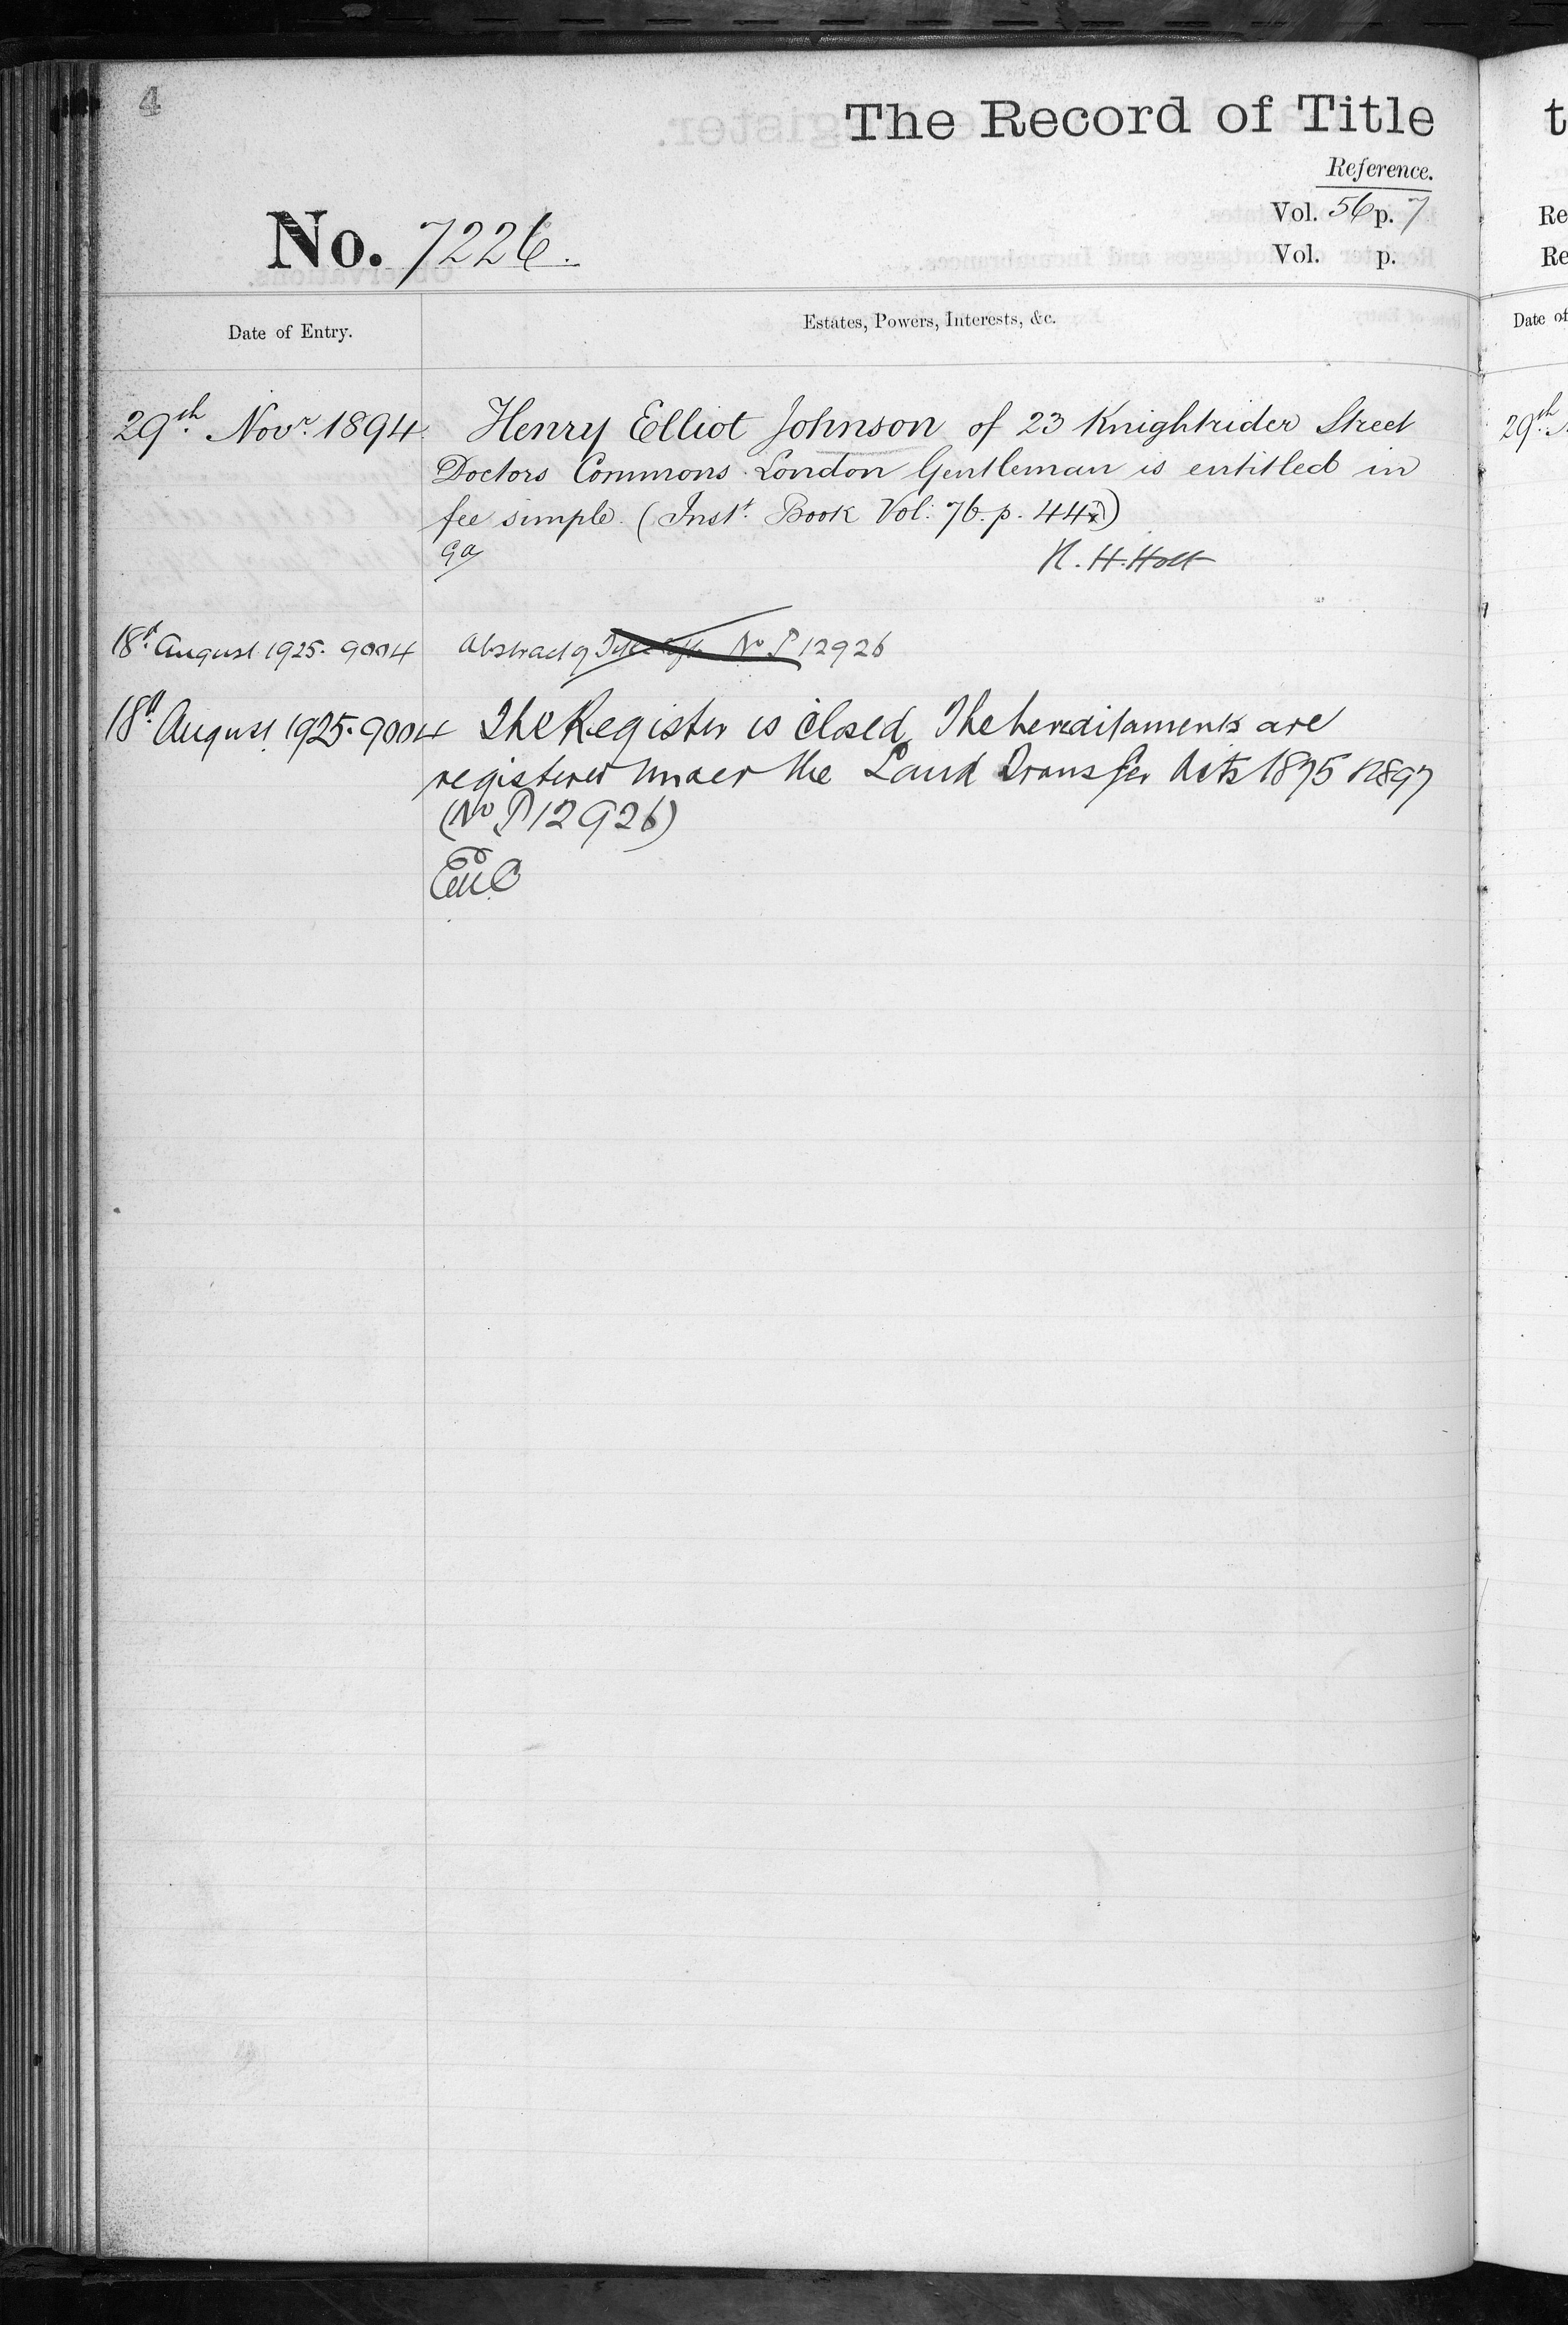 4
The Record of Title
Reference.
Vol. 56 p. 7
No. 7226.
Vol. p.
Date of Entry.
Estates, Powers, Interests, &c.
29th Novr. 1894
Henry Elliot Johnson of 23 Knightrider Street
Doctors Commons London Gentleman is entitled in
fee simple. (Inst. Book Vol: 76. p. 44
R. H. Holt
18th August 1925. 9004
Abstract of Title No P 12926
18th August 1925. 9004
The Register is closed, The hereditaments are
registered under the Land Transfer Acts 1875 & 1897
(No P 12926)
t
Re
Re
Date of
29th